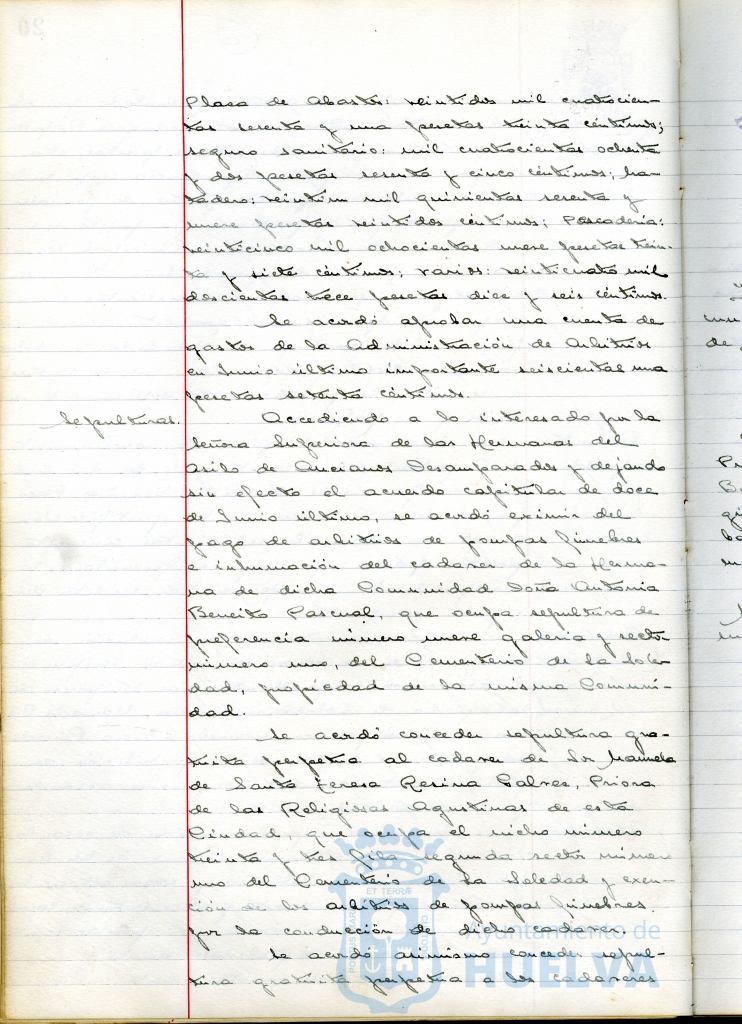 Plasa de Abastos: veintidos mil cuatrocien-
tas sesenta y una pesetas treinta céntimos;
seguro sanitario: mil cuatrocientas ochenta
y dos pesetas sesenta y cinco céntimos; Ma-
tadero: veintiun mil quinientas sesenta y
nueve pesetas veintidos céntimos; Pescaderia:
veinticinco mil ochocientas nueve pesetas trein-
ta y siete céntimos; varios: veinticuatro mil
doscientas trece pesetas diez y seis céntimos.
Se acordó aprobar una cuenta de
gastos de la Administración de Arbitrios
en Junio último importante seiscientas una
pesetas setenta céntimos.
Sepulturas.
Accediendo a lo interesado por la
Señora Superiora de las Hermanas del
Asilo de Ancianos Desamparados y dejando
sin efecto el acuerdo capitular de doce
de Junio último, se acordó eximir del
pago de arbitrios de pompas fúnebres
e inhumación del cadaver de la Herma-
na de dicha Comunidad Doña Antonia
Beneito Pascual, que ocupa sepultura de
preferencia número nueve galeria y sector
número uno, del Cementerio de la Sole-
dad, propiedad de la misma Comuni-
dad.
Se acordó conceder sepultura gra-
tuita perpetua al cadaver de Sor Manuela
de Santa Teresa Resina Galvez, Priora
de las Religiosas Agustinas de esta
Ciudad, que ocupa el nicho número
treinta y tres fila segunda sector número
uno del Cementerio de La Soledad y exen-
ción de los arbitrios de pompas fúnebres
por la conducción de dicho cadaver.
Se acordó asimismo conceder sepul-
tura gratuita perpetua a los cadaveres
Ayuntamiento de
HUELVA